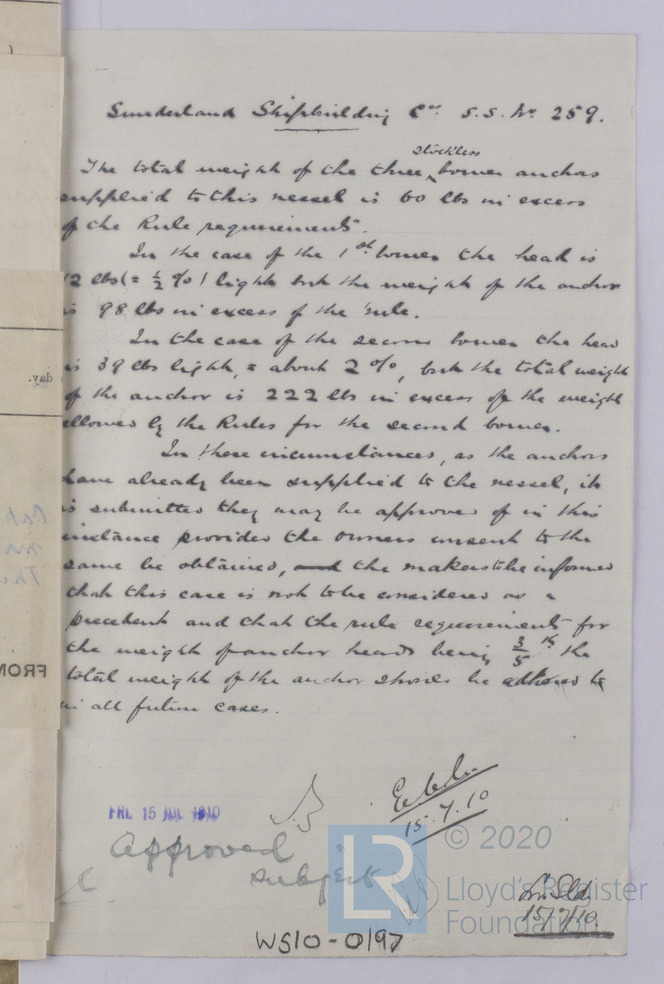 Sunderland Shipbuilding Coy. S.S. No. 259.
stockless
The total weight of the three bower anchors
supplied to this vessel is 60 lbs in excess
of the Rule requirements.
In the case of the 1st bower the head is
12 lbs (= ½ %) light but the weight of the anchor
is 98 lbs in excess of the rule.
In the case of the second bower the head
is 39 lbs light, = about 2 %, but the total weight
of the anchor is 222 lbs in excess of the weight
allowed by the Rules for the second bower.
In these circumstances, as the anchors
have already been supplied to the vessel, it
is submitted they may be approved of in this
instance provided the owners consent to the
same be obtained, and the makers to be informed
that this case is not to be considered as a
precedent and that the rule requirements for
the weight of anchor heads being 3/5 ths the
total weight of the anchor should be adhered to
in all future cases.
15.7.10
FRI. 15 JUL 1910
Approved
subject
© 2020
LR
Lloyd's Register
Foundation
15/7/10.
WS10-0197
day.
FROM